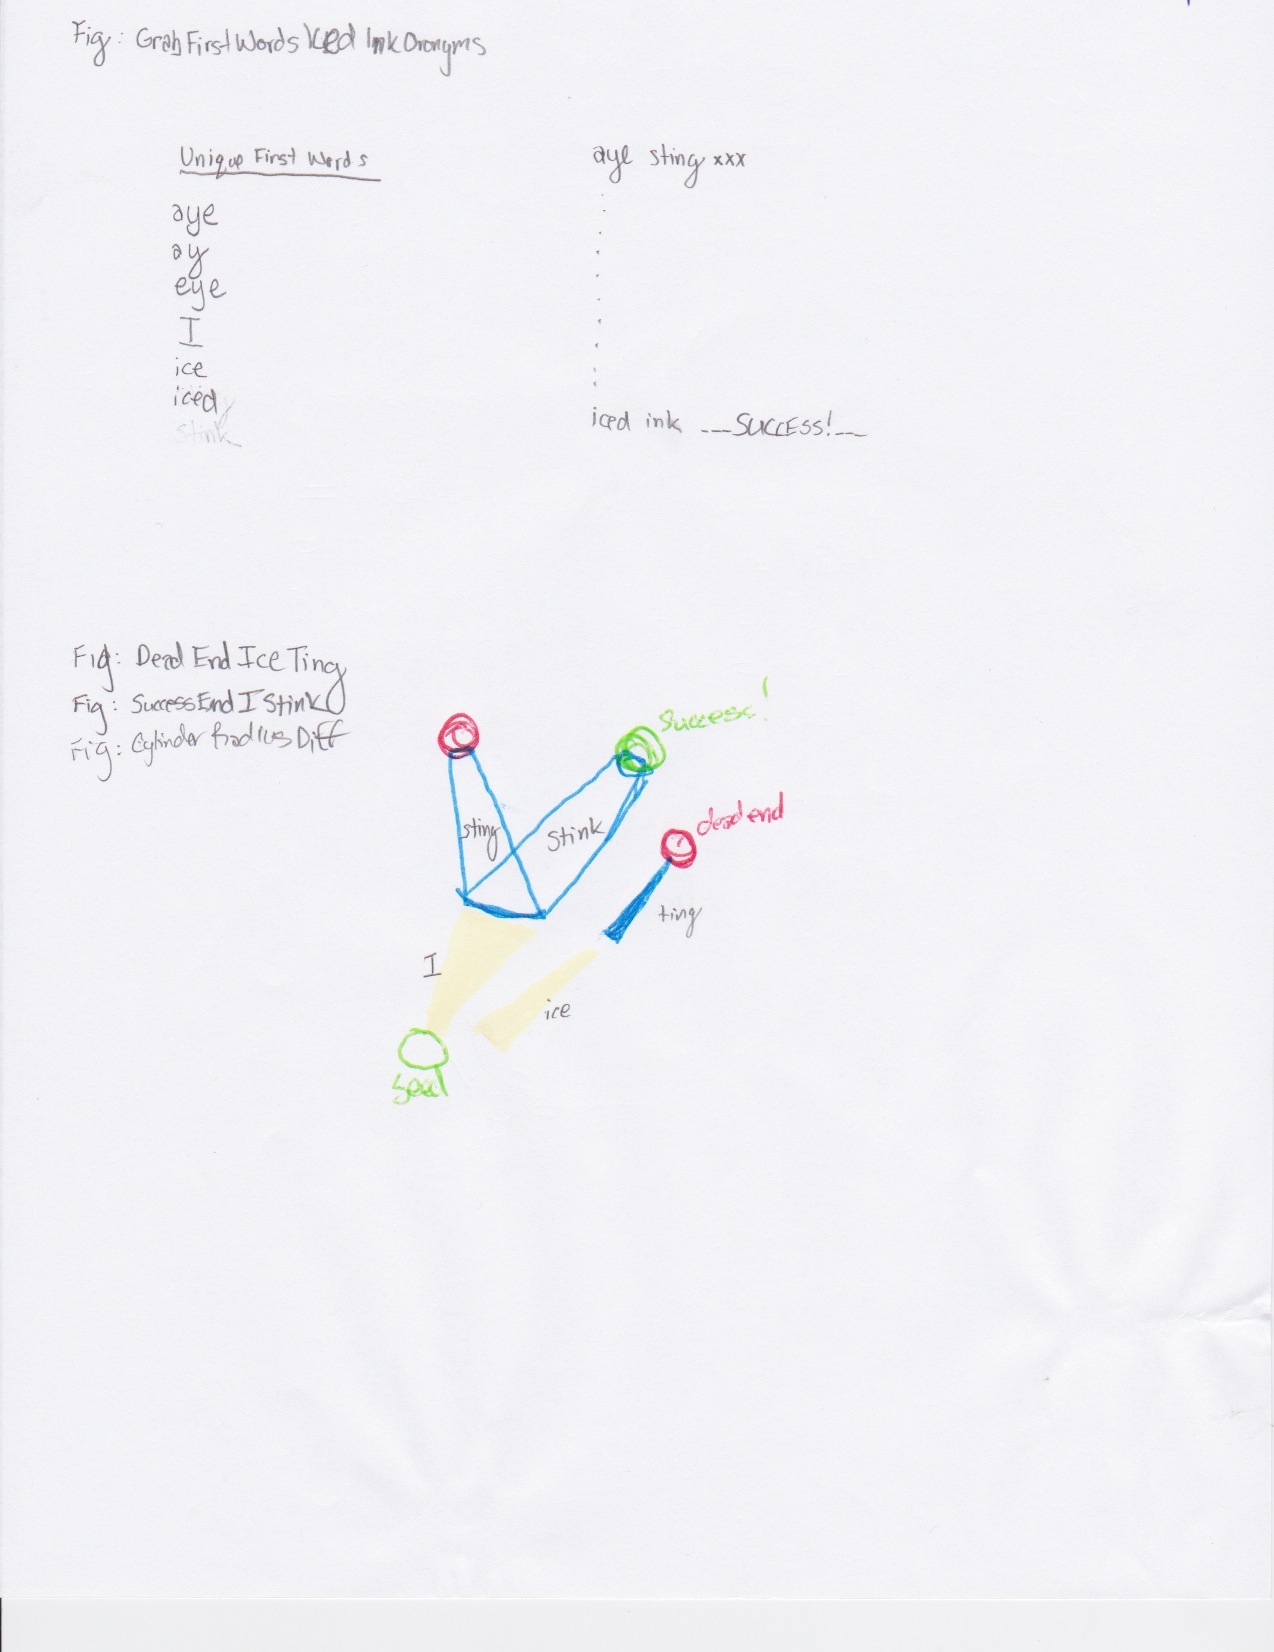 Fig: GrabFirstWords Iced Ink Oronyms
Unique First Words
aye
ay
eye
I
ice
iced
stink
aye sting xxx
iced ink ---SUCCESS!---
Fig: Dead End Ice Ting
Fig: Success End I Stink
Fig: Cylinder Radius Diff
Success!
sting
stink
dead end
ting
I
ice
Seed